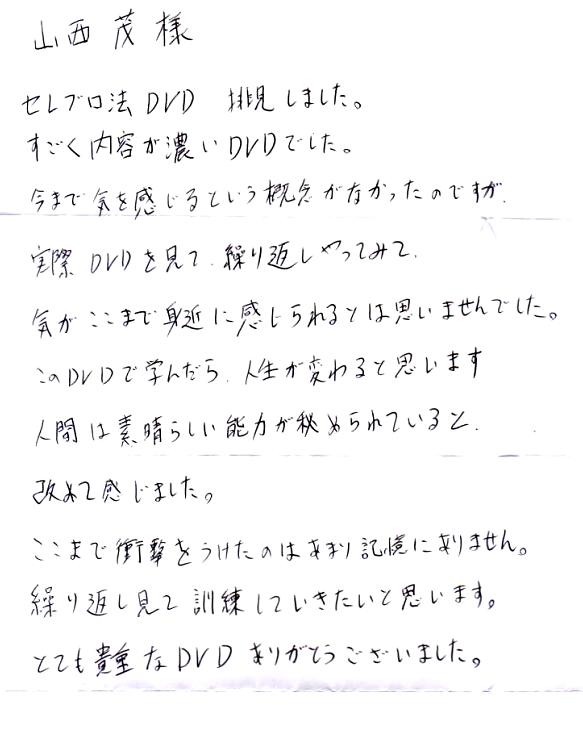 山西 茂 様
セレブロ法DVD 排見しました。
すごく内容が濃いDVDでした。
今まで気を感じるという概念がなかったのですが、
実際DVDを見て、繰り返しやってみて、
気がここまで身近に感じられるとは思いませんでした。
このDVDで学んだら、人生が変わると思います
人間は素晴らしい能力が秘められていると、
改めて感じました。
ここまで衝撃をうけたのはあまり記憶にありません。
繰り返し見て訓練していきたいと思います。
とても貴重なDVDありがとうございました。